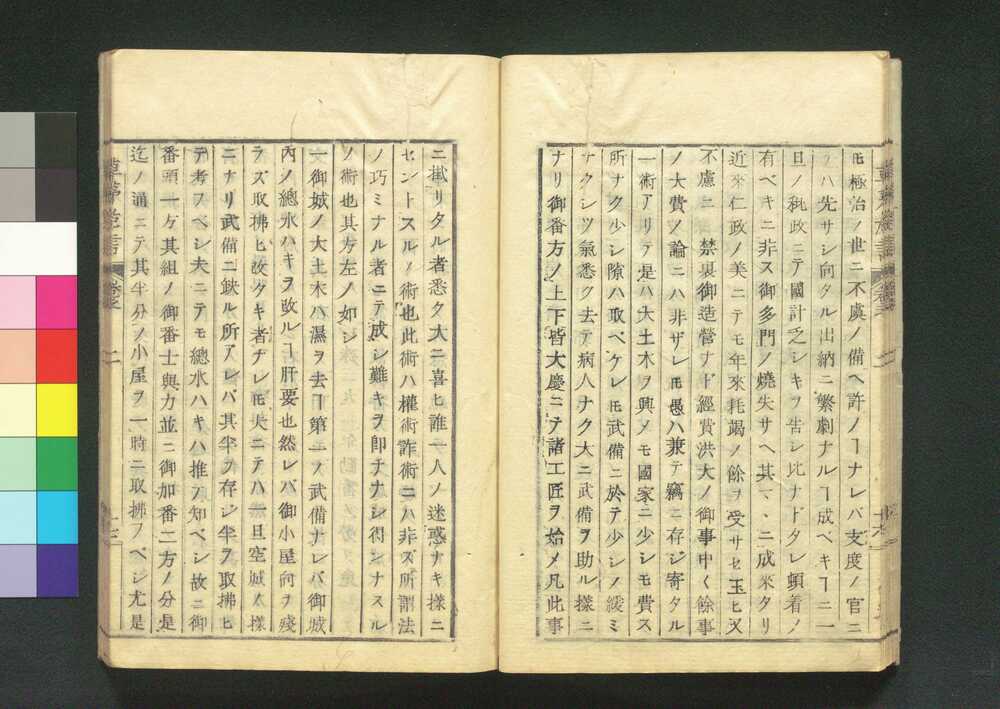 𪜈極治ノ世ニ不虞ノ備ヘ許ノヿナレバ支度ノ官ニ
ハ先サシ向タル出納ニ繁劇ナルヿ成ベキヿニ一
旦ノ秕政ニテ國計乏シキヲ告シ比ナドタレ頓着ノ
有ベキニ非ス御多門ノ燒失サヘ其ヽヽニ成來タリ
近來仁政ノ美ニテモ年來耗竭ノ餘ヲ受サセ玉ヒ又
不慮ニ 禁裏御造營ナド經費洪大ノ御事中く餘事
ノ大費ノ論ニハ非ザレ𪜈愚ハ兼テ竊ニ存ジ寄タル
一術アリテ是ハ大土木ヲ興メモ國家ニ少シモ費ス
所ナク少シ隙ハ取ベケレ𪜈武備ニ於テ少シノ緩ミ
ナクシツ氣悉ク去テ病人ナク大ニ武備ヲ助ル樣ニ
ナリ御番方ノ上下皆大慶ニテ諸工匠ヲ始メ凡此事
ニ掛リタル者悉ク大ニ喜ヒ誰一人ノ迷惑ナキ樣ニ
セントスルノ術也此術ハ權術詐術ニハ非ズ所謂法
ノ巧ミナル者ニテ成シ難キヲ卽チナシ得ンナスル
ノ術也其方左ノ如シ
一御城ノ大土木ハ濕ヲ去ヿ第一ノ武備ナレバ御城
內ノ總水ハキヲ改ルヿ肝要也然レバ御小屋向ヲ殘
ラズ取拂ヒ改タキ者ヂレ𪜈夫ニテハ一旦空城ノ樣
ニナリ武備ニ缺ル所アレバ其半ヲ存シ半ヲ取拂ヒ
テ考フベシ夫ニテモ總水ハキハ推テ知ベシ故ニ御
番頭一方其組ノ御番士與力並ニ御加番二方ノ分是
迄ノ通ニテ其半分ノ小屋ヲ一時ニ取拂フベシ尤是